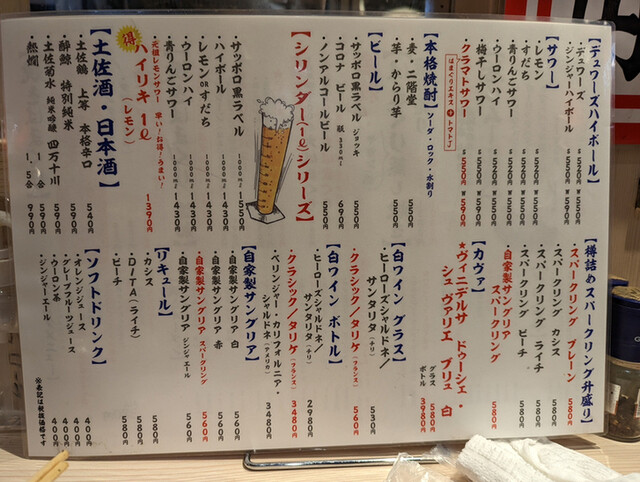 【デュワーズハイボール】
・デュワーズ S 520円 W 590円
・ジンジャーハイボール S 550円
【サワー】
・レモン S 520円 W 590円
・すだち S 520円 W 590円
・ウーロンハイ S 520円 W 590円
・梅干しサワー S 520円 W 590円
・青りんごサワー S 520円 W 590円
・クラマトサワー S 550円 W 590円
はまぐりエキス+トマト♪
【本格焼酎】ソーダ・ロック・水割り
・麦・二階堂 550円
・芋・からり芋 550円
【ビール】
・サッポロ黒ラベル ジョッキ 550円
・コロナ ビール 瓶 330ml 690円
・ノンアルコールビール 550円
【シリンダー(1ℓ)シリーズ】
・サッポロ黒ラベル 1000ml 1550円
・ハイボール 1000ml 1430円
・レモンorすだち 1000ml 1430円
・ウーロンハイ 1000ml 1430円
・青りんごサワー 1000ml 1430円
元祖レモンサワー 早い!お得!うまい!
得 ハイリキ 1ℓ (レモン) 1390円
【土佐酒・日本酒】
・土佐鶴 上等 本格辛口 540円
・酔鯨 特別純米 590円
・土佐菊水 純米吟醸 四万十川 590円
・熱燗 1合 590円
1.5合 990円
【樽詰めスパークリング升盛り】
・スパークリング プレーン 580円
・スパークリング カシス 580円
・スパークリング ライチ 580円
・スパークリング ピーチ 580円
・自家製サングリア スパークリング 580円
【カヴァ】
★ヴィニデルサ ドゥーシェ・シュ ヴァリエ ブリュ 白
グラス 580円
ボトル 3980円
【白ワイン グラス】
・ヒーローズシャルドネ/サンタリタ(チリ) 530円
・クラシック/タリケ(フランス) 560円
【白ワイン ボトル】
・ヒーローズシャルドネ/サンタリタ(チリ) 2980円
・クラシック/タリケ(フランス) 3480円
・ベリンジャー・カリフォルニア・シャルドネ(アメリカ) 3480円
【自家製サングリア】
・自家製サングリア 白 560円
・自家製サングリア 赤 560円
・自家製サングリア スパークリング 560円
・自家製サングリア ジンジャエール 560円
【リキュール】
・カシス 580円
・DITA(ライチ) 580円
・ピーチ 580円
【ソフトドリンク】
・オレンジジュース 400円
・グレープフルーツジュース 400円
・ウーロン茶 400円
・ジンジャーエール 400円
※表記は税抜価格です